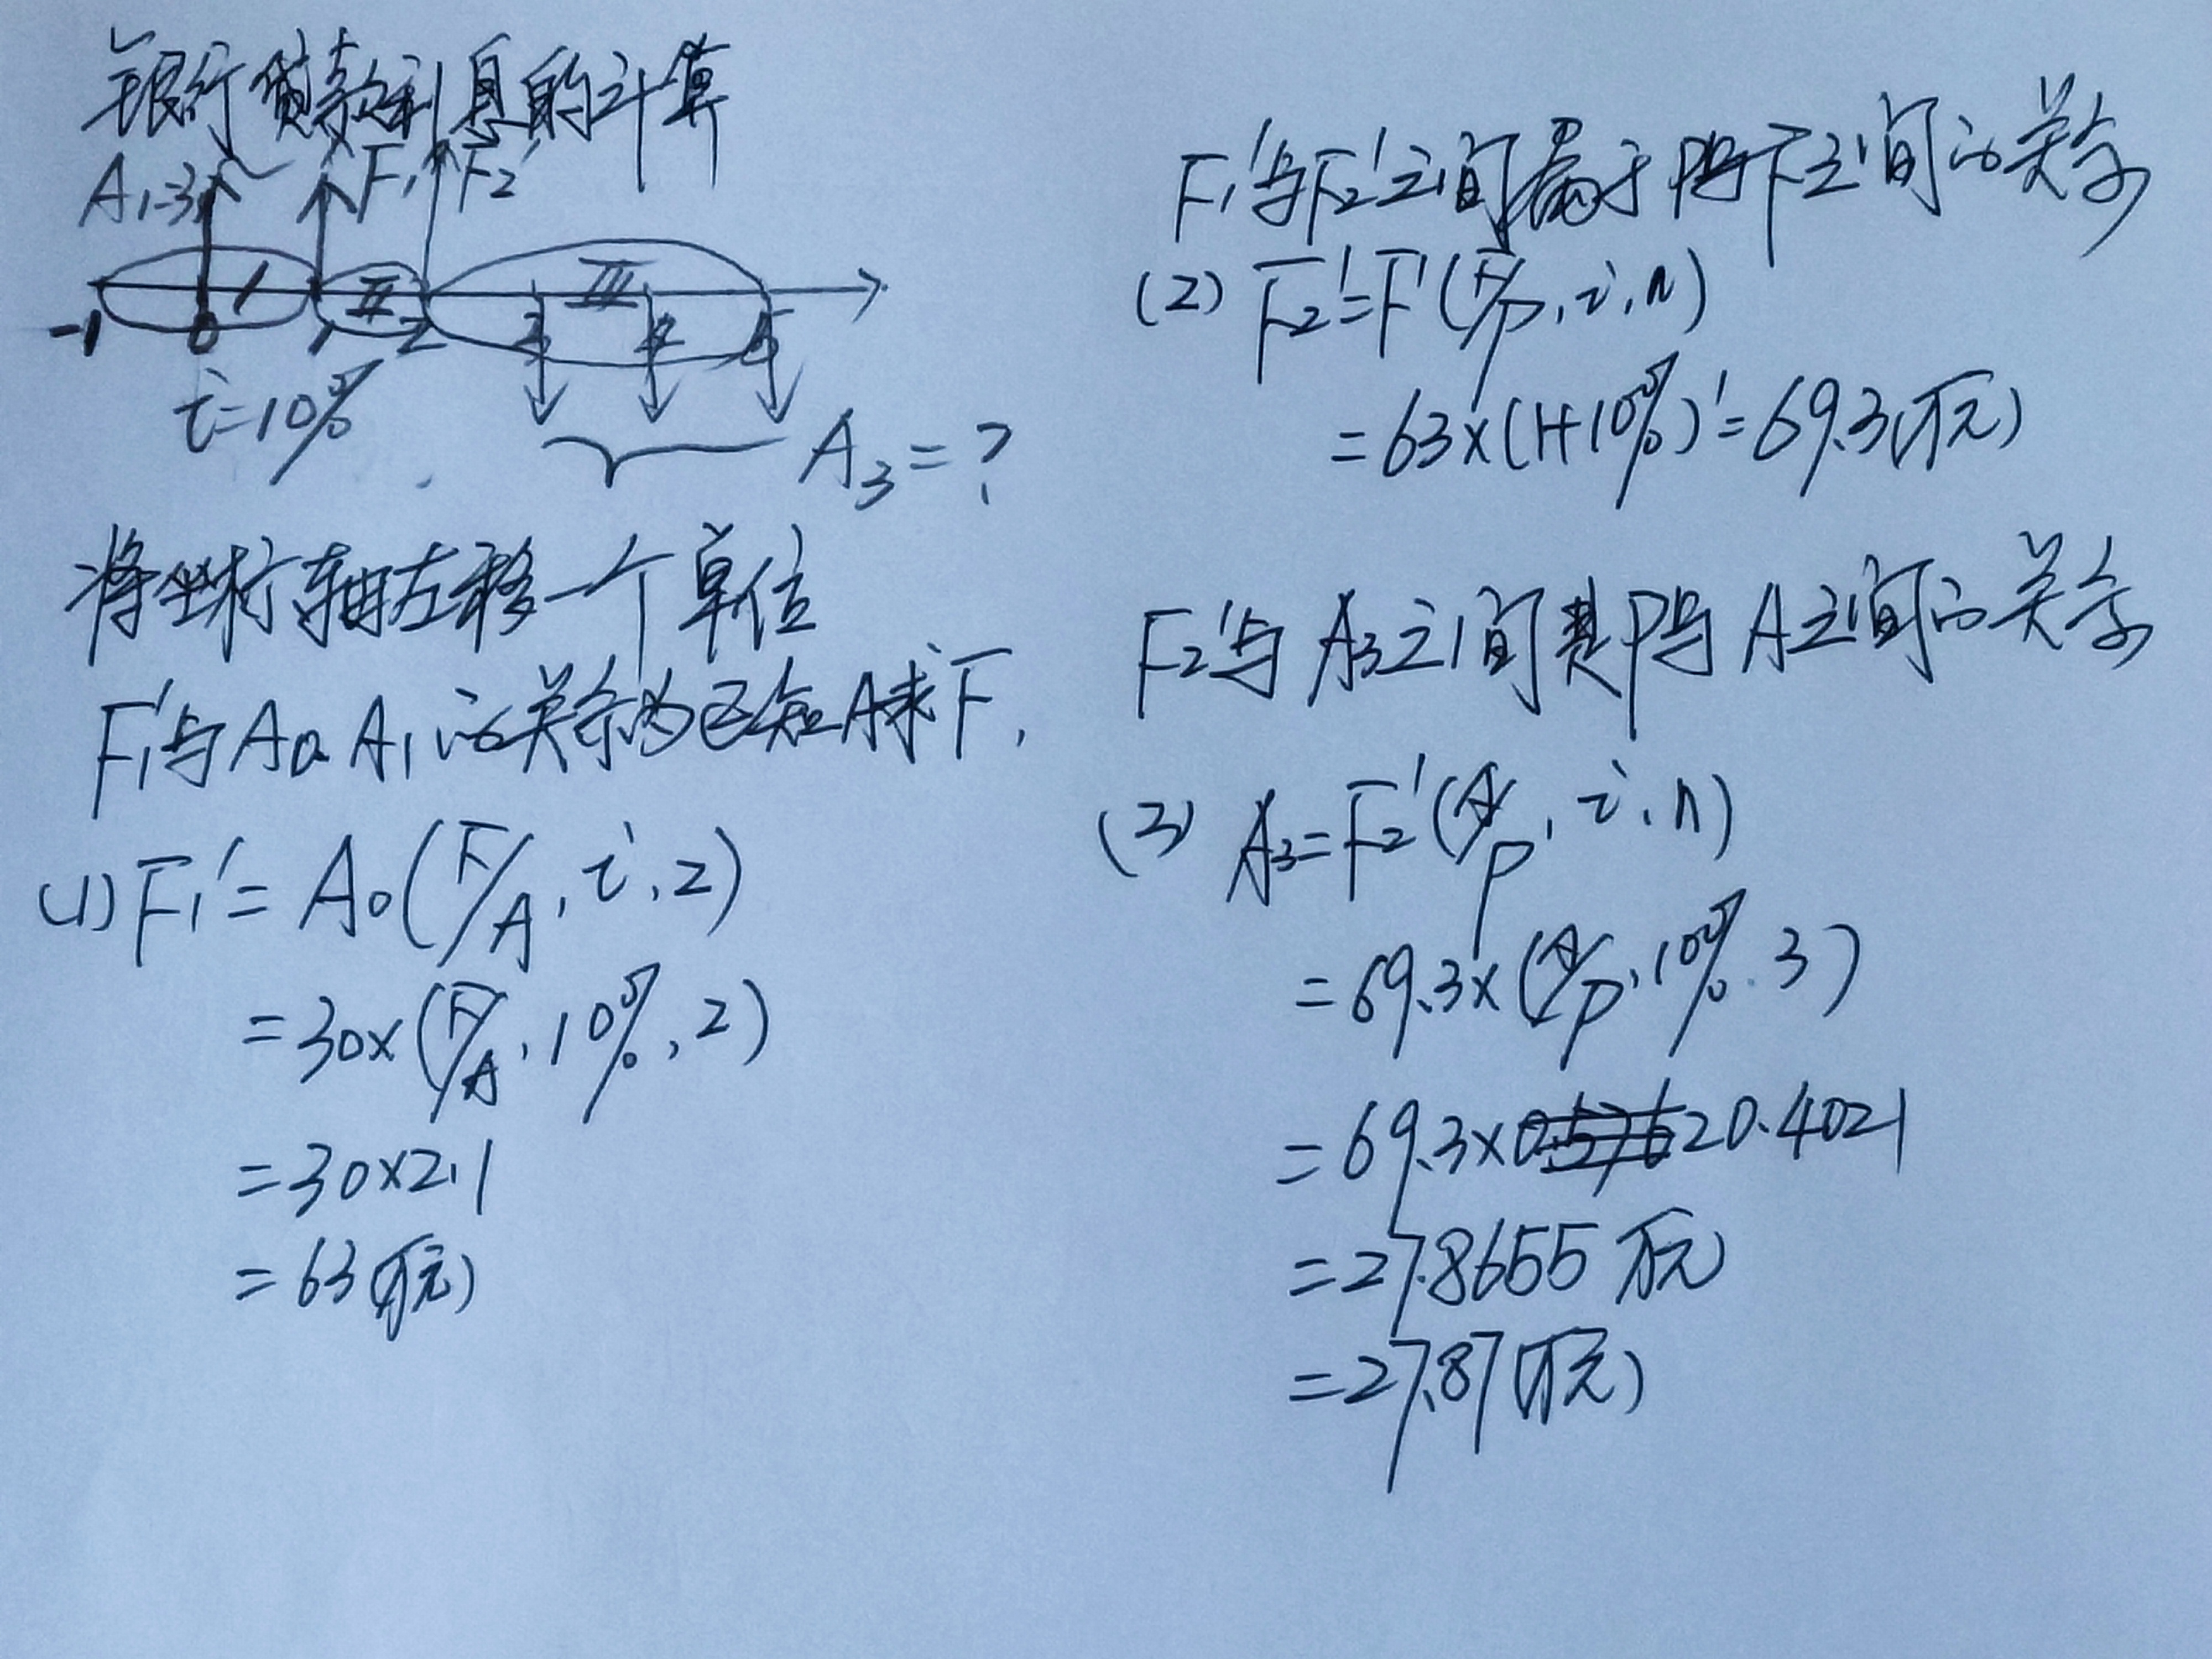 银行贷款利息的计算
A₁₌₃₀ F₁' F₂'
I II III
-1 0 1 2 3 4 5
i=10%
A₃=?
将坐标轴左移一个单位
F₁'与A₀、A₁的关系为已知A求F,
(1) F₁'=A₀(F/A, i, 2)
=30×(F/A, 10%, 2)
=30×2.1
=63(万元)
F₁'与F₂'之间属于P与F之间的关系
(2) F₂'=F'(F/P, i, n)
=63×(1+10%)¹=69.3(万元)
F₂'与A₃之间是P与A之间的关系
(3) A₃=F₂'(A/P, i, n)
=69.3×(A/P, 10%, 3)
=69.3×0.4021
=27.8655万元
=27.87(万元)